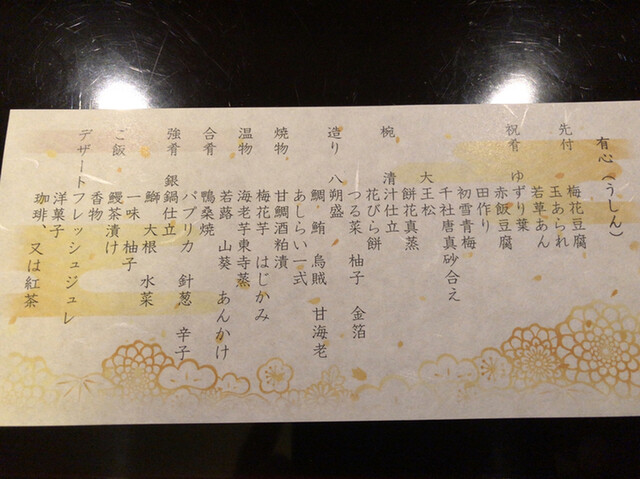 有心(うしん)
先付 梅花豆腐
玉あられ
若草あん
祝肴 ゆずり葉
赤飯豆腐
田作り
初雪青梅
千社唐真砂合え
大王松
椀 清汁仕立
餅花真蒸
花びら餅
つる菜 柚子 金箔
造り 八朔盛
鯛、鮪、烏賊 甘海老
あしらい一式
焼物 甘鯛酒粕漬
梅花芋 はじかみ
温物 海老芋東寺蒸
若蕗 山葵 あんかけ
合肴 鴨桑焼
パプリカ 針葱 辛子
強肴 銀鍋仕立
鰤 大根 水菜
一味 柚子
ご飯 鰻茶漬け
香物
デザート フレッシュジュレ
洋菓子
珈琲、又は紅茶